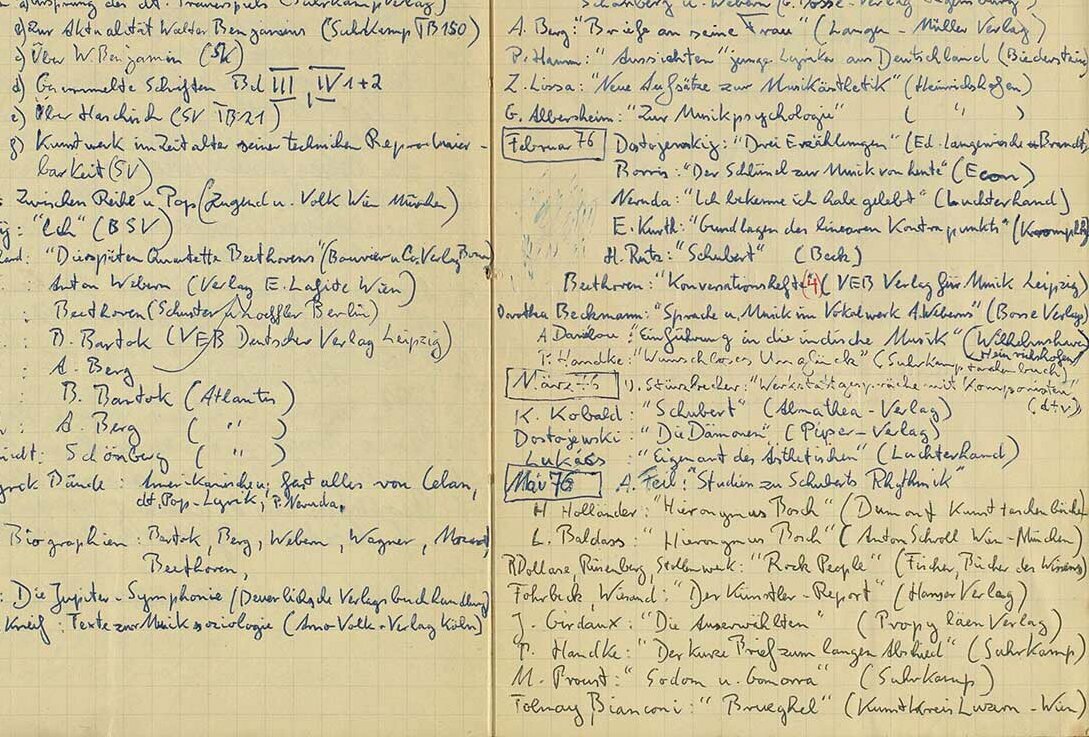 Ursprung des dt. Trauerspiels (Suhrkamp Verlag)
Zur Aktualität Walter Benjamins (Suhrkamp TB 150)
c) Über W. Benjamin (SV)
d) Gesammelte Schriften Bd III, IV 1+2
e) Über Haschisch (SV TB 21)
f) Kunstwerk im Zeitalter seiner technischen Reproduzier-
barkeit (SV)
Zwischen Reihe u. Pop (Jugend u. Volk Wien München)
: "Ich" (BSV)
: "Die späten Quartette Beethovens" (Bouvier u. Co. Verlag Bonn)
Anton Webern (Verlag E. Lafite Wien)
: Beethoven (Schuster u. Loeffler Berlin)
: B. Bartok (VEB Deutscher Verlag Leipzig)
: A. Berg
B. Bartok (Atlantis)
: A. Berg ( " )
: Schönberg ( " )
Bände : Amerikanischen, fast alles von Celan,
dt. Pop-Lyrik, P. Neruda,
Biographien : Bartok, Berg, Webern, Wagner, Mozart
Beethoven,
: Die Jupiter-Symphonie (Deuerlichsche Verlagsbuchhandlung)
Kneif : Texte zur Musiksoziologie (Arno Volk-Verlag Köln)
Schönberg u. Webern (G. Bosse-Verlag Regensburg)
A. Berg : "Briefe an seine Frau" (Langen-Müller Verlag)
P. Hamm : "Aussichten" junge Lyriker aus Deutschland (Biederstein
Z. Lissa : "Neue Aufsätze zur Musikästhetik" (Heinrichshofen)
G. Albersheim : "Zur Musikpsychologie" ( " )
Februar 76 Dostojewskij : "Drei Erzählungen" (Ed. Langewiesche-Brandt,
Borris : "Der Schlüssel zur Musik von heute" (Econ)
Neruda : "Ich bekenne ich habe gelebt" (Luchterhand)
E. Kurth : "Grundlagen des linearen Kontrapunkts"
H. Rutz : "Schubert" (Beck)
Beethoven : "Konversationshefte" (4) (VEB Verlag für Musik Leipzig)
Dorothea Beckmann : "Sprache u. Musik im Vokalwerk A. Weberns" (Bosse Verlag)
A Danielou : "Einführung in die indische Musik" (Wilhelmshaven
Heinrichshofen)
P. Handke : "Wunschloses Unglück" (Suhrkamp taschenbuch)
März 76 Stürzbecher : "Werkstattgespräche mit Komponisten"
(dtv)
K. Kobald : "Schubert" (Almathea-Verlag)
Dostojewski : "Die Dämonen" (Piper-Verlag)
Lukács : "Eigenart des Ästhetischen" (Luchterhand)
Mai 76 A. Feil : "Studien zu Schuberts Rhythmik"
H Hollander : "Hieronymus Bosch" (Dumont Kunsttaschenbücher
L. Baldass : "Hieronymus Bosch" (Anton Schroll Wien-München)
RDollase, Rüsenberg, Stollenwerk : "Rock People" (Fischer, Bücher des Wissens)
Fohrbeck, Wiesand : "Der Künstler-Report" (Hanser Verlag)
J. : "Die Auserwählten" (Propyläen Verlag)
P. Handke : "Der kurze Brief zum langen Abschied" (Suhrkamp)
M. Proust : "Sodom u. Gomorra" (Suhrkamp)
Tolnay Bianconi : "Brueghel" (Kunstkreis Luzern-Wien)